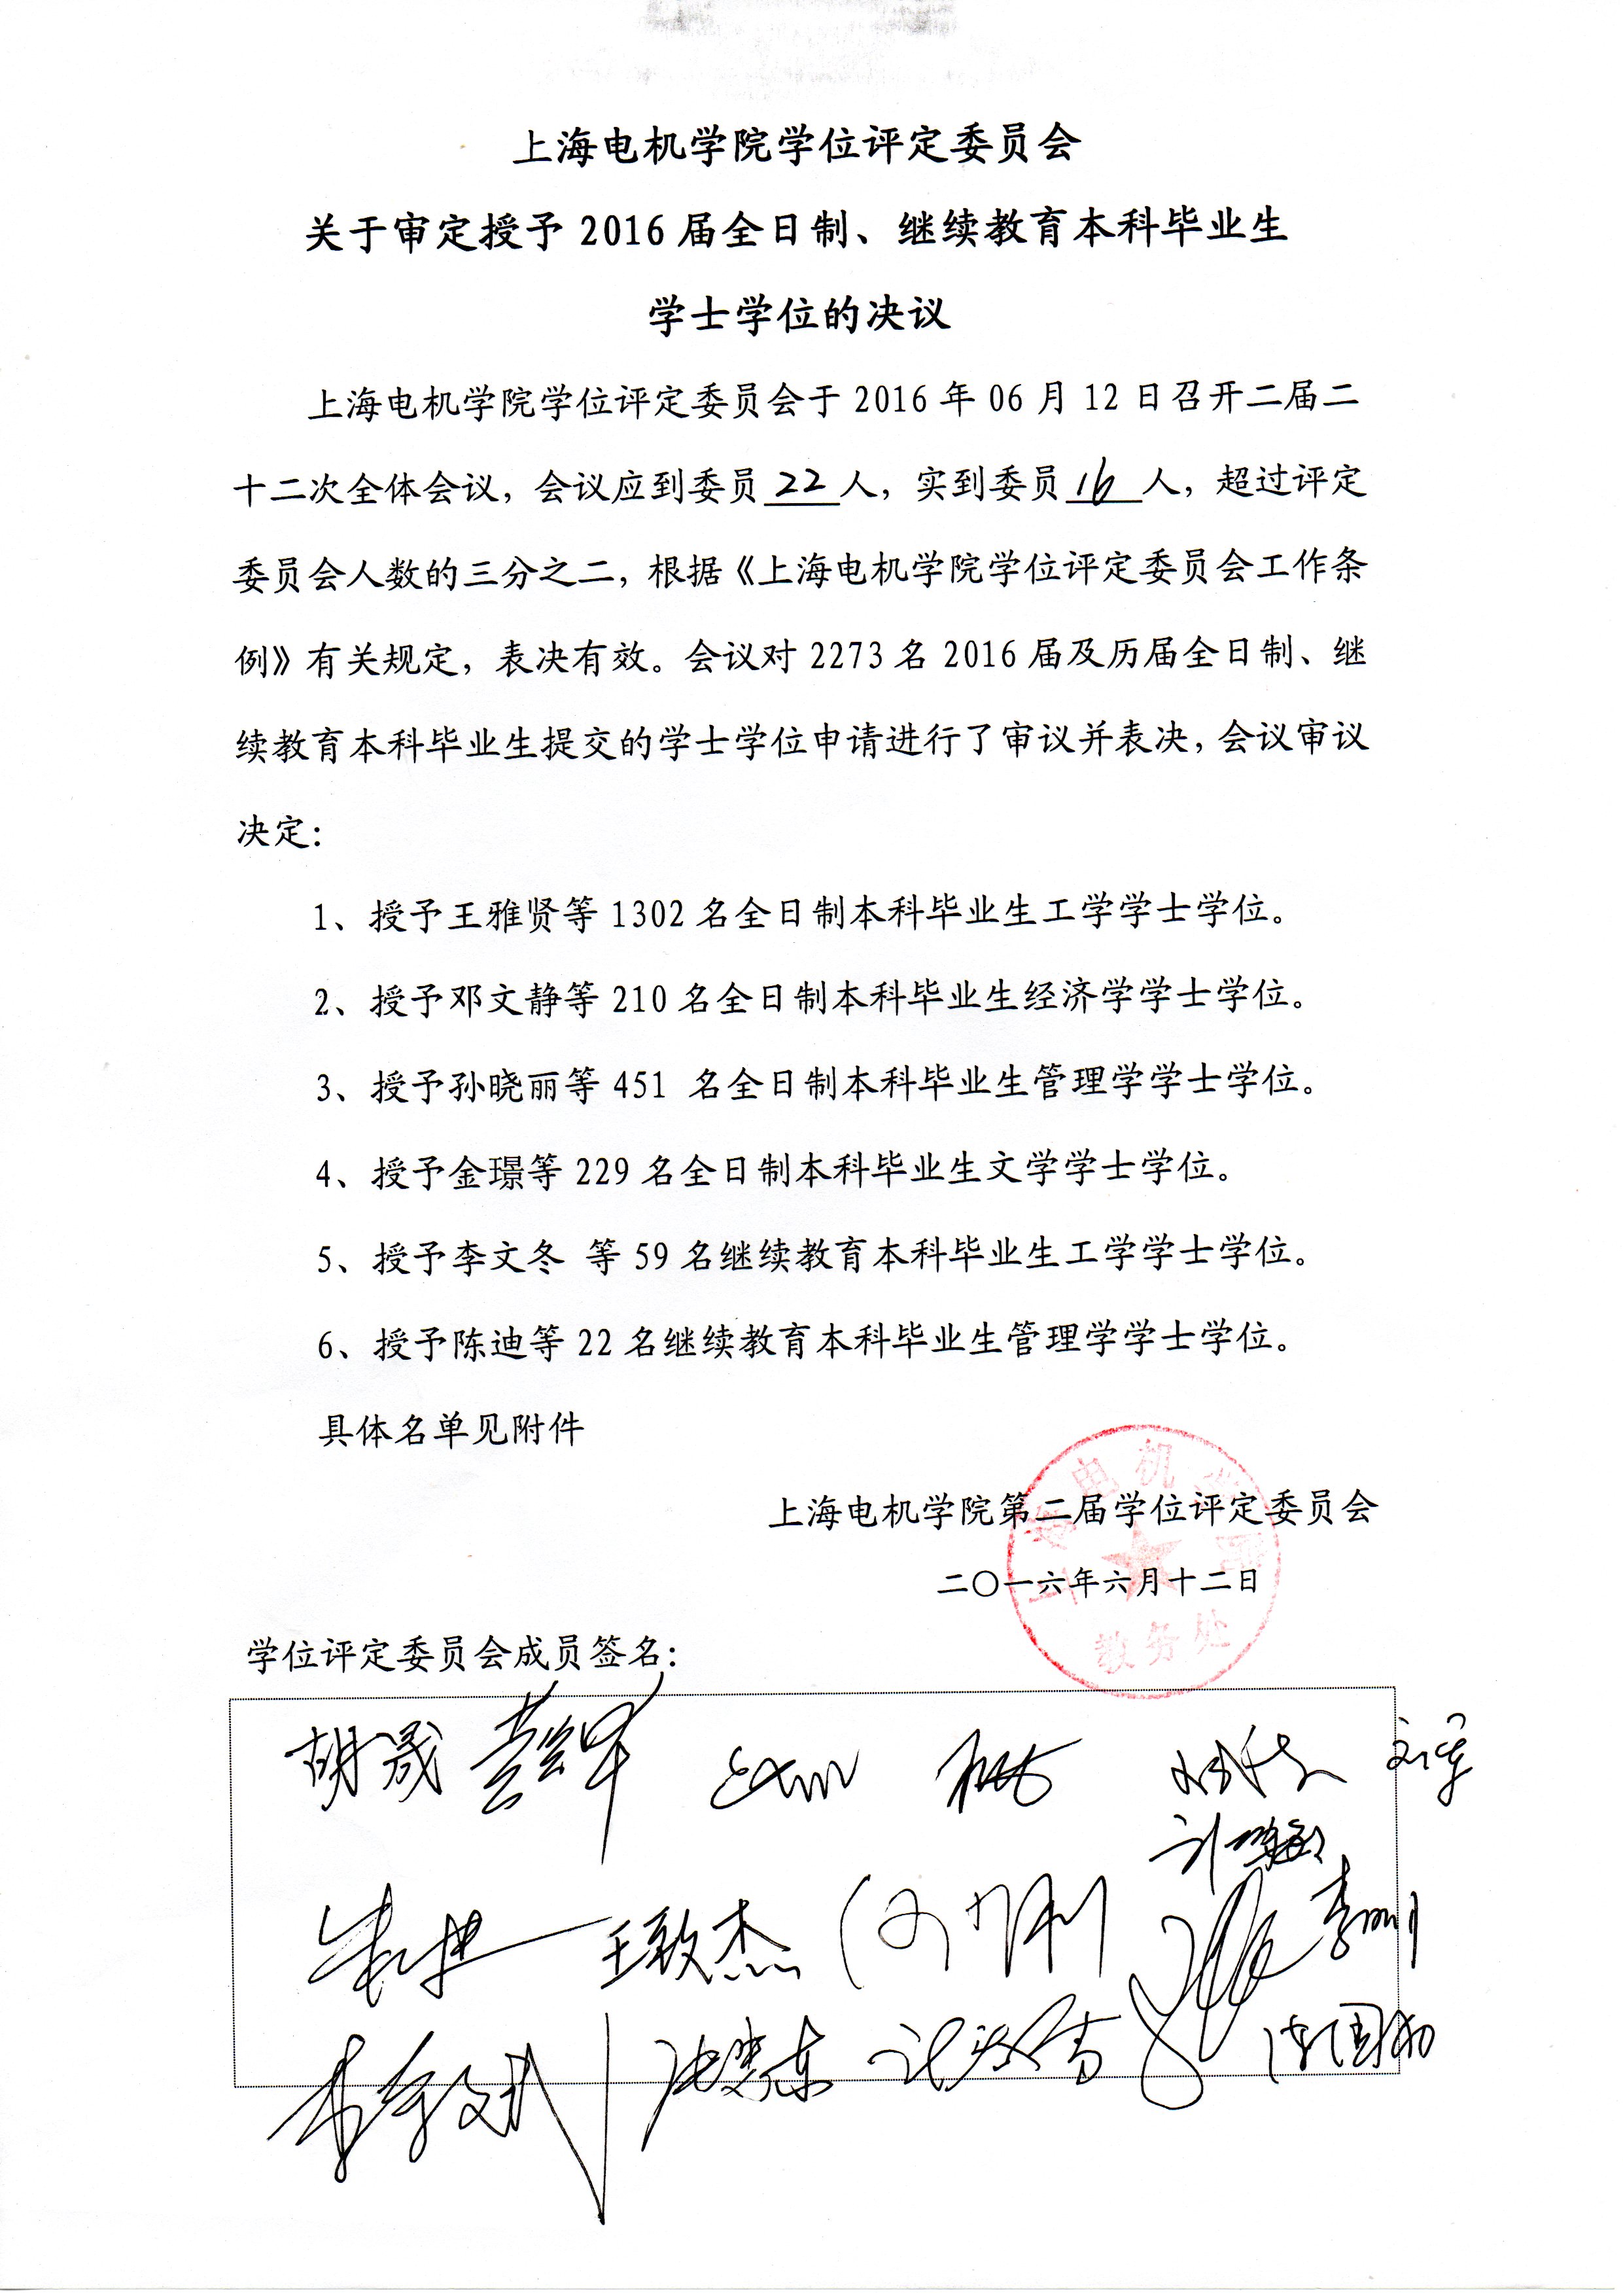 上海电机学院学位评定委员会
关于审定授予 2016 届全日制、继续教育本科毕业生
学士学位的决议
上海电机学院学位评定委员会于 2016 年 06 月 12 日召开二届二
十二次全体会议，会议应到委员 22 人，实到委员 16 人，超过评定
委员会人数的三分之二，根据《上海电机学院学位评定委员会工作条
例》有关规定，表决有效。会议对 2273 名 2016 届及历届全日制、继
续教育本科毕业生提交的学士学位申请进行了审议并表决，会议审议
决定：
1、授予王雅贤等 1302 名全日制本科毕业生工学学士学位。
2、授予邓文静等 210 名全日制本科毕业生经济学学士学位。
3、授予孙晓丽等 451 名全日制本科毕业生管理学学士学位。
4、授予金璟等 229 名全日制本科毕业生文学学士学位。
5、授予李文冬 等 59 名继续教育本科毕业生工学学士学位。
6、授予陈迪等 22 名继续教育本科毕业生管理学学士学位。
具体名单见附件
上海电机学院第二届学位评定委员会
二〇一六年六月十二日
上海电机学院
教务处
学位评定委员会成员签名：
胡晟
王致杰